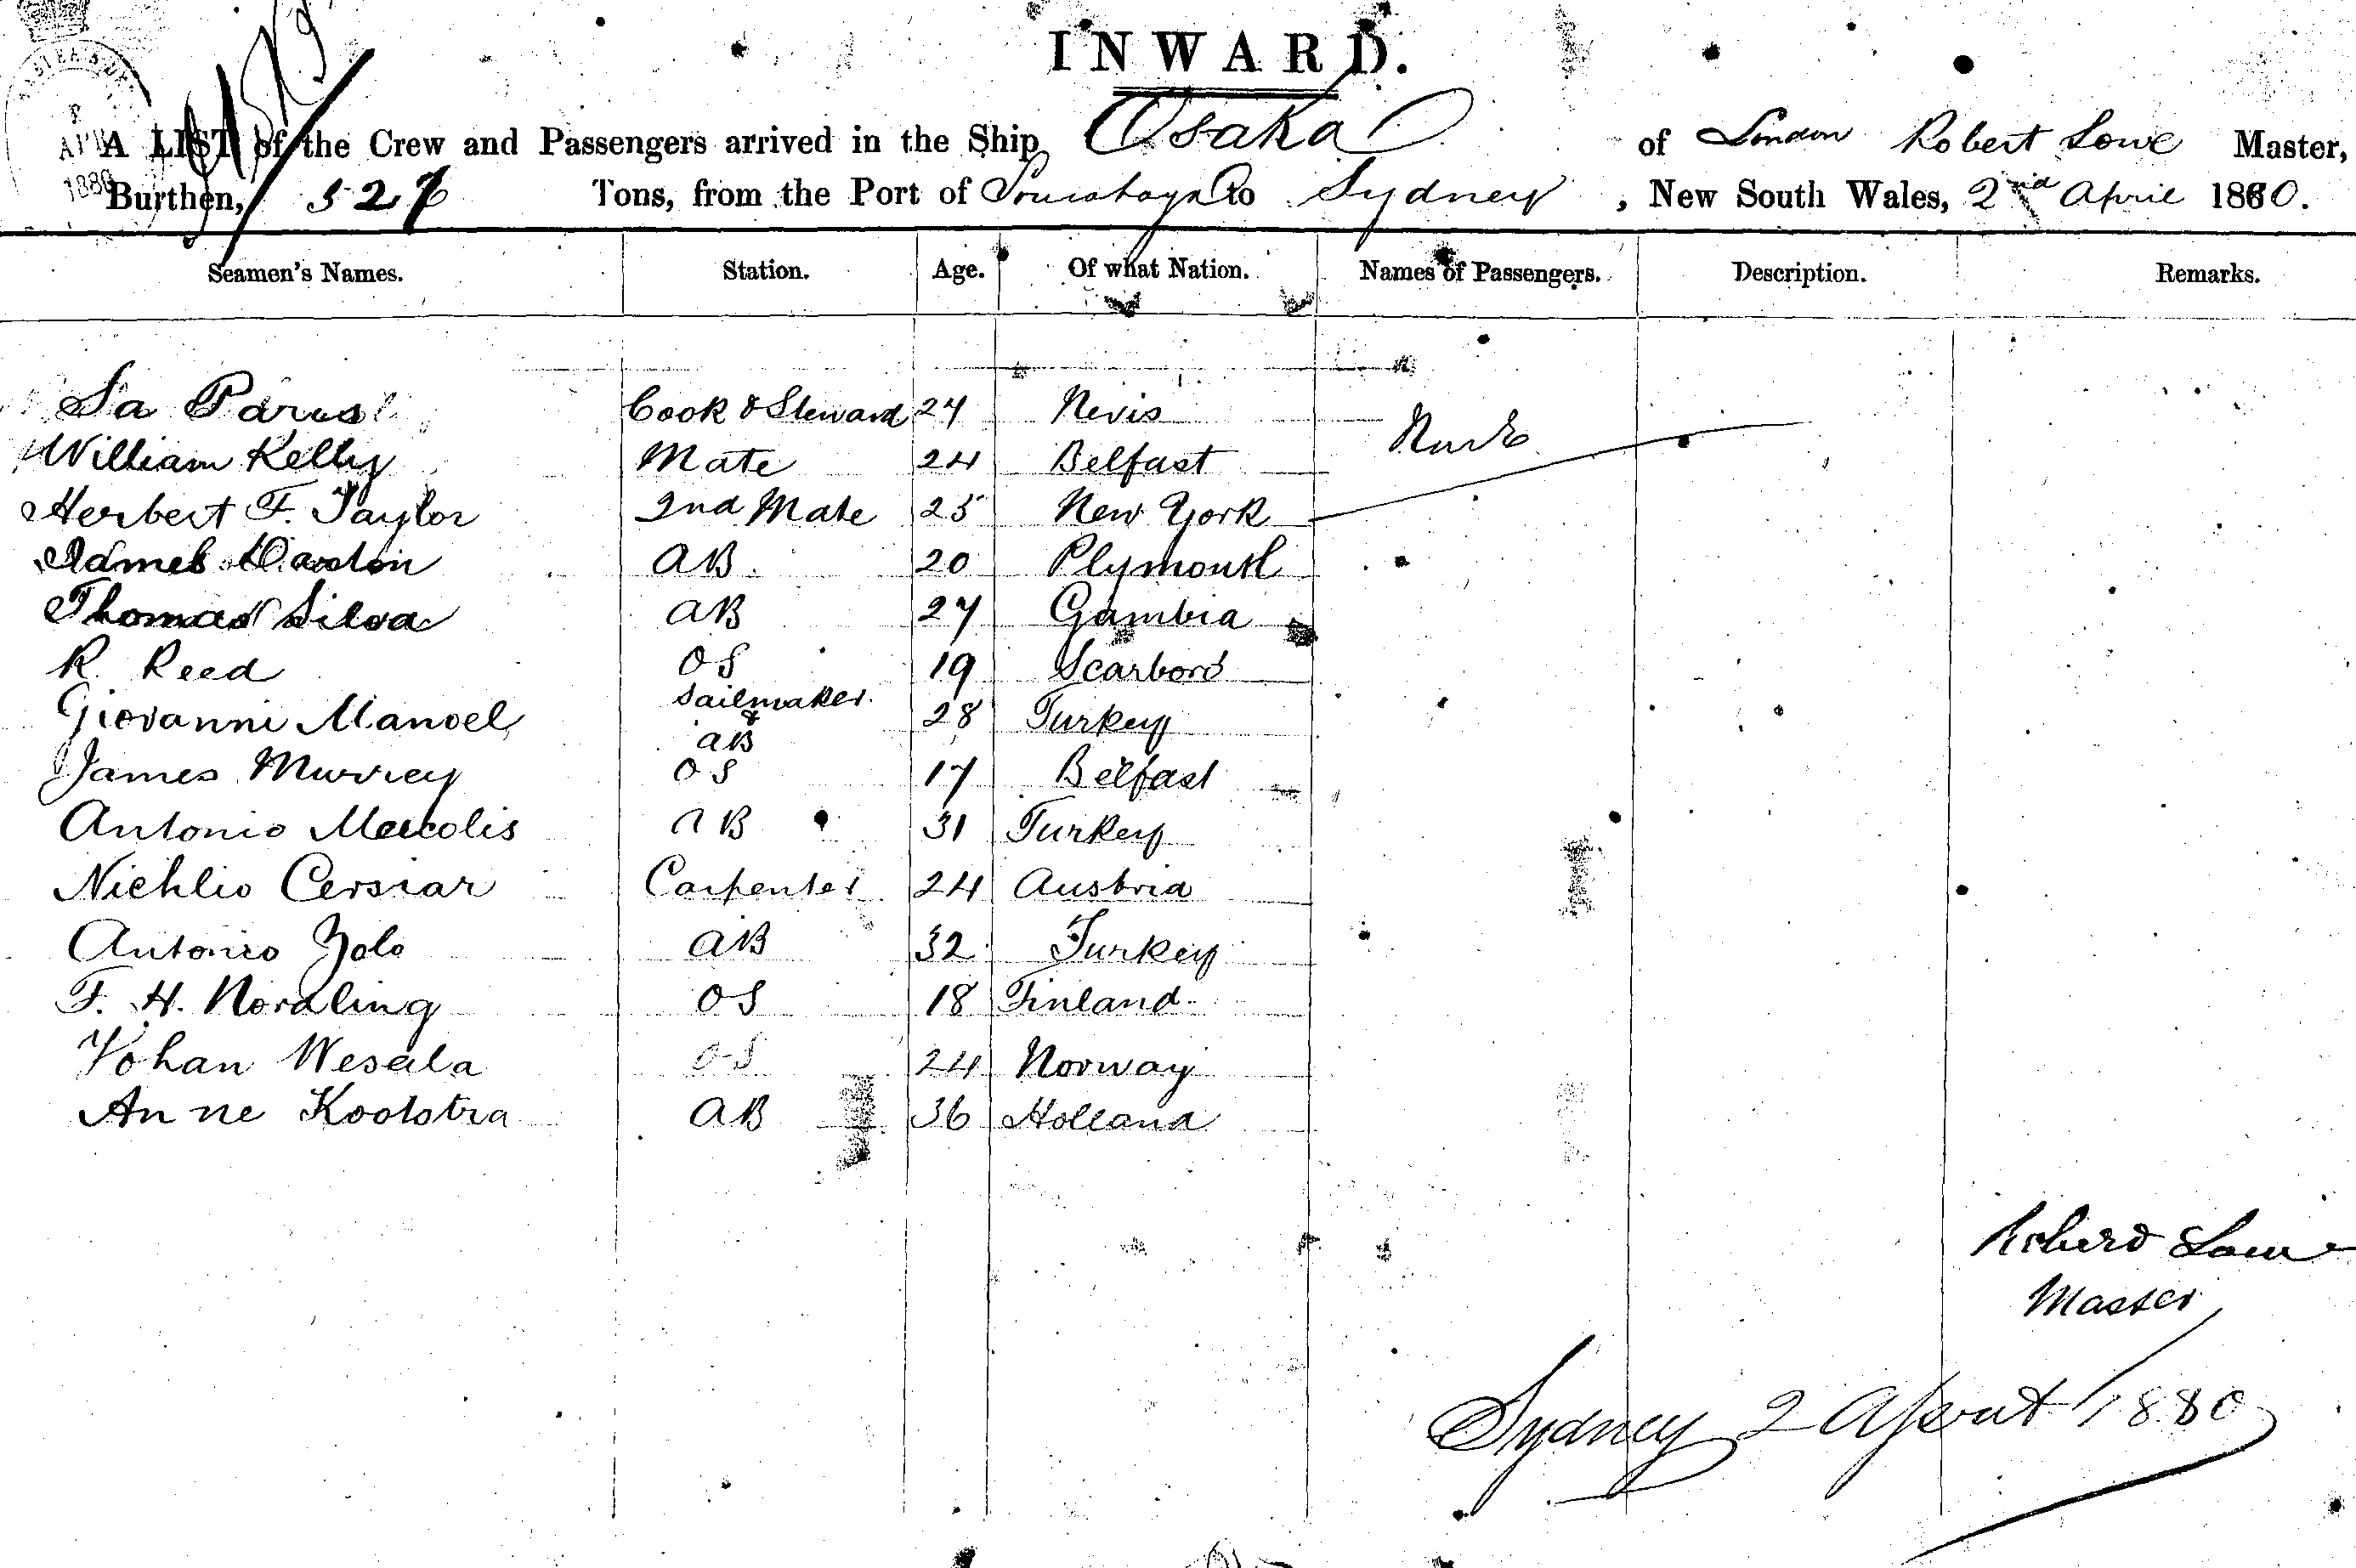 INWARD.
A LIST of the Crew and Passengers arrived in the Ship Osaka of London Robert Lowe Master,
Burthen, 527 Tons, from the Port of Sourabaya to Sydney, New South Wales, 2nd April 1880.
Seamen's Names. Station. Age. Of what Nation. Names of Passengers. Description. Remarks.
Sa Parus Cook & Steward 27 Nevis
William Kelly Mate 24 Belfast
Herbert F. Taylor 2nd Mate 25 New York
James AB. 20 Plymouth
Thomas Silva AB 27 Gambia
R. Reed OS 19 Scarboro
Giovanni Manoel Sailmaker & AB 28 Turkey
James Murrey OS 17 Belfast
Antonio AB 31 Turkey
Nichlio Cersiar Carpenter 24 Austria
Antonio Zolo AB 32 Turkey
F. H. Nordling OS 18 Finland
Yohan Wesala OS 24 Norway
Anne Kootstra AB 36 Holland
Robert Lowe
Master
Sydney 2 April 1880